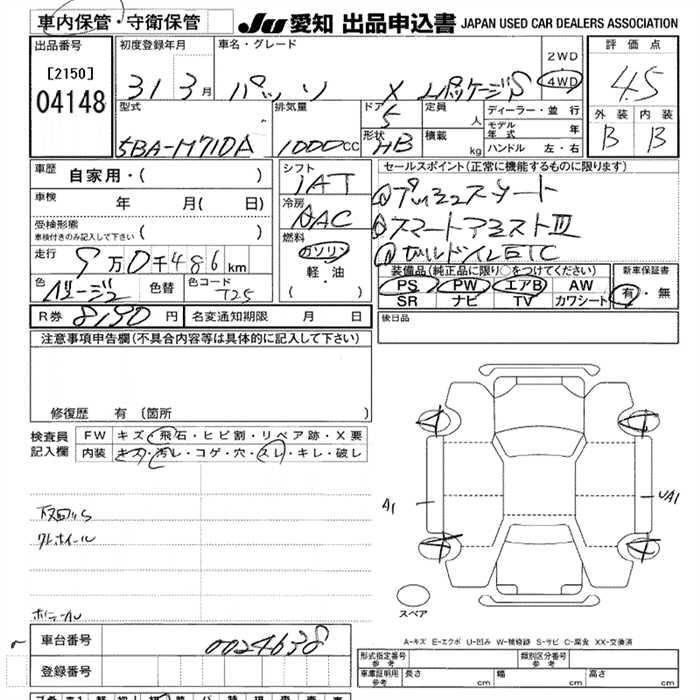 車内保管・守衛保管 JU 愛知 出品申込書 JAPAN USED CAR DEALERS ASSOCIATION
出品番号 初度登録年月 車名・グレード 2WD 評価点
[2150] 31 3月 パッソ X LパッケージS 4WD 4.5
04148 型式 排気量 ドア 5 定員 人 ディーラー・並行 外装 内装
モデル年式 年
5BA-M710A 1000CC 形状 HB 積載 kg ハンドル 左・右 B B
車歴 自家用・( ) シフト IAT セールスポイント(正常に機能するものに限ります)
車検 年 月( 日) 冷房 AAC ①プッシュスタート
受検形態 ②スマートアシストⅢ
車検付きのみ記入して下さい ( ) 燃料
走行 9万0千486km ガソリン 装備品(純正品に限り○をつけてください) 新車保証書
色 ベージュ 色替 色コード T25 軽・油 PS PW エアB AW 有・無
( ・ ) SR ナビ TV カワシート
R券 8190円 名変通知期限 月 日 後日品
注意事項申告欄(不具合内容等は具体的に記入して下さい)
修復歴 有 〔箇所 〕
検査員 FW キズ・飛石・ヒビ割・リペア跡・X要
記入欄 内装 キズ・汚レ・コゲ・穴・スレ・キレ・破レ
A1 UA1
スペア
A-キズ E-エクボ U-凹み W-補修跡 S-サビ C-腐食 XX-交換済
車台番号 0024638
登録番号
形式指定番号 参考 類別区分番号 参考
車庫証明用 参考 長さ cm 幅 cm 高さ cm